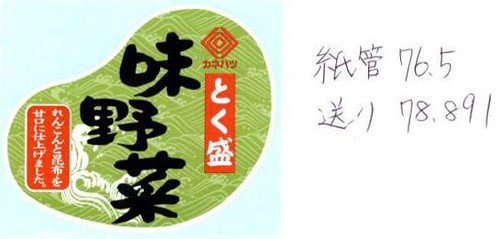 カネハツ
とく盛
味野菜
れんこんと昆布を
甘口に仕上げました。
紙管 76.5
送り 78.891